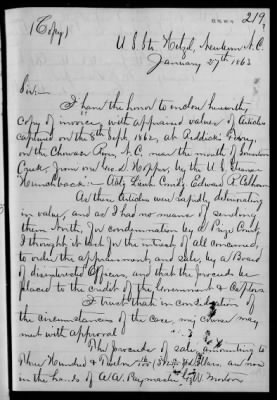 219
(Copy)
U.S. Str Hetzel, Newbern N.C.
January 27th 1863
Sir:
I have the honor to enclose herewith,
copy of invoice, with appraised value of Articles
captured on the 8th Sept. 1862, at Riddick's
on the Chowan River, N.C. near the mouth of
Creek, from one Geo. D. Hopper, by the U.S. Steamer
"Hunchback" Actg Lieut Comdg Edward R. Colhoun
As these Articles were rapidly deteriorating
in value, and as I had no means of sending
them North, for condemnation by a Prize Court,
I thought it best for the interest of all concerned,
to order the appraisement, and sale, by a Board
of disinterested Officers, and that the proceeds be
placed to the credit of the Government & Captors
I trust that in consideration of
the circumstances of the case, my course may
meet with approval
The proceeds of sale, amounting to
Three Hundred & Twelve Dollars, are now
in the hands of A.A. Paymaster